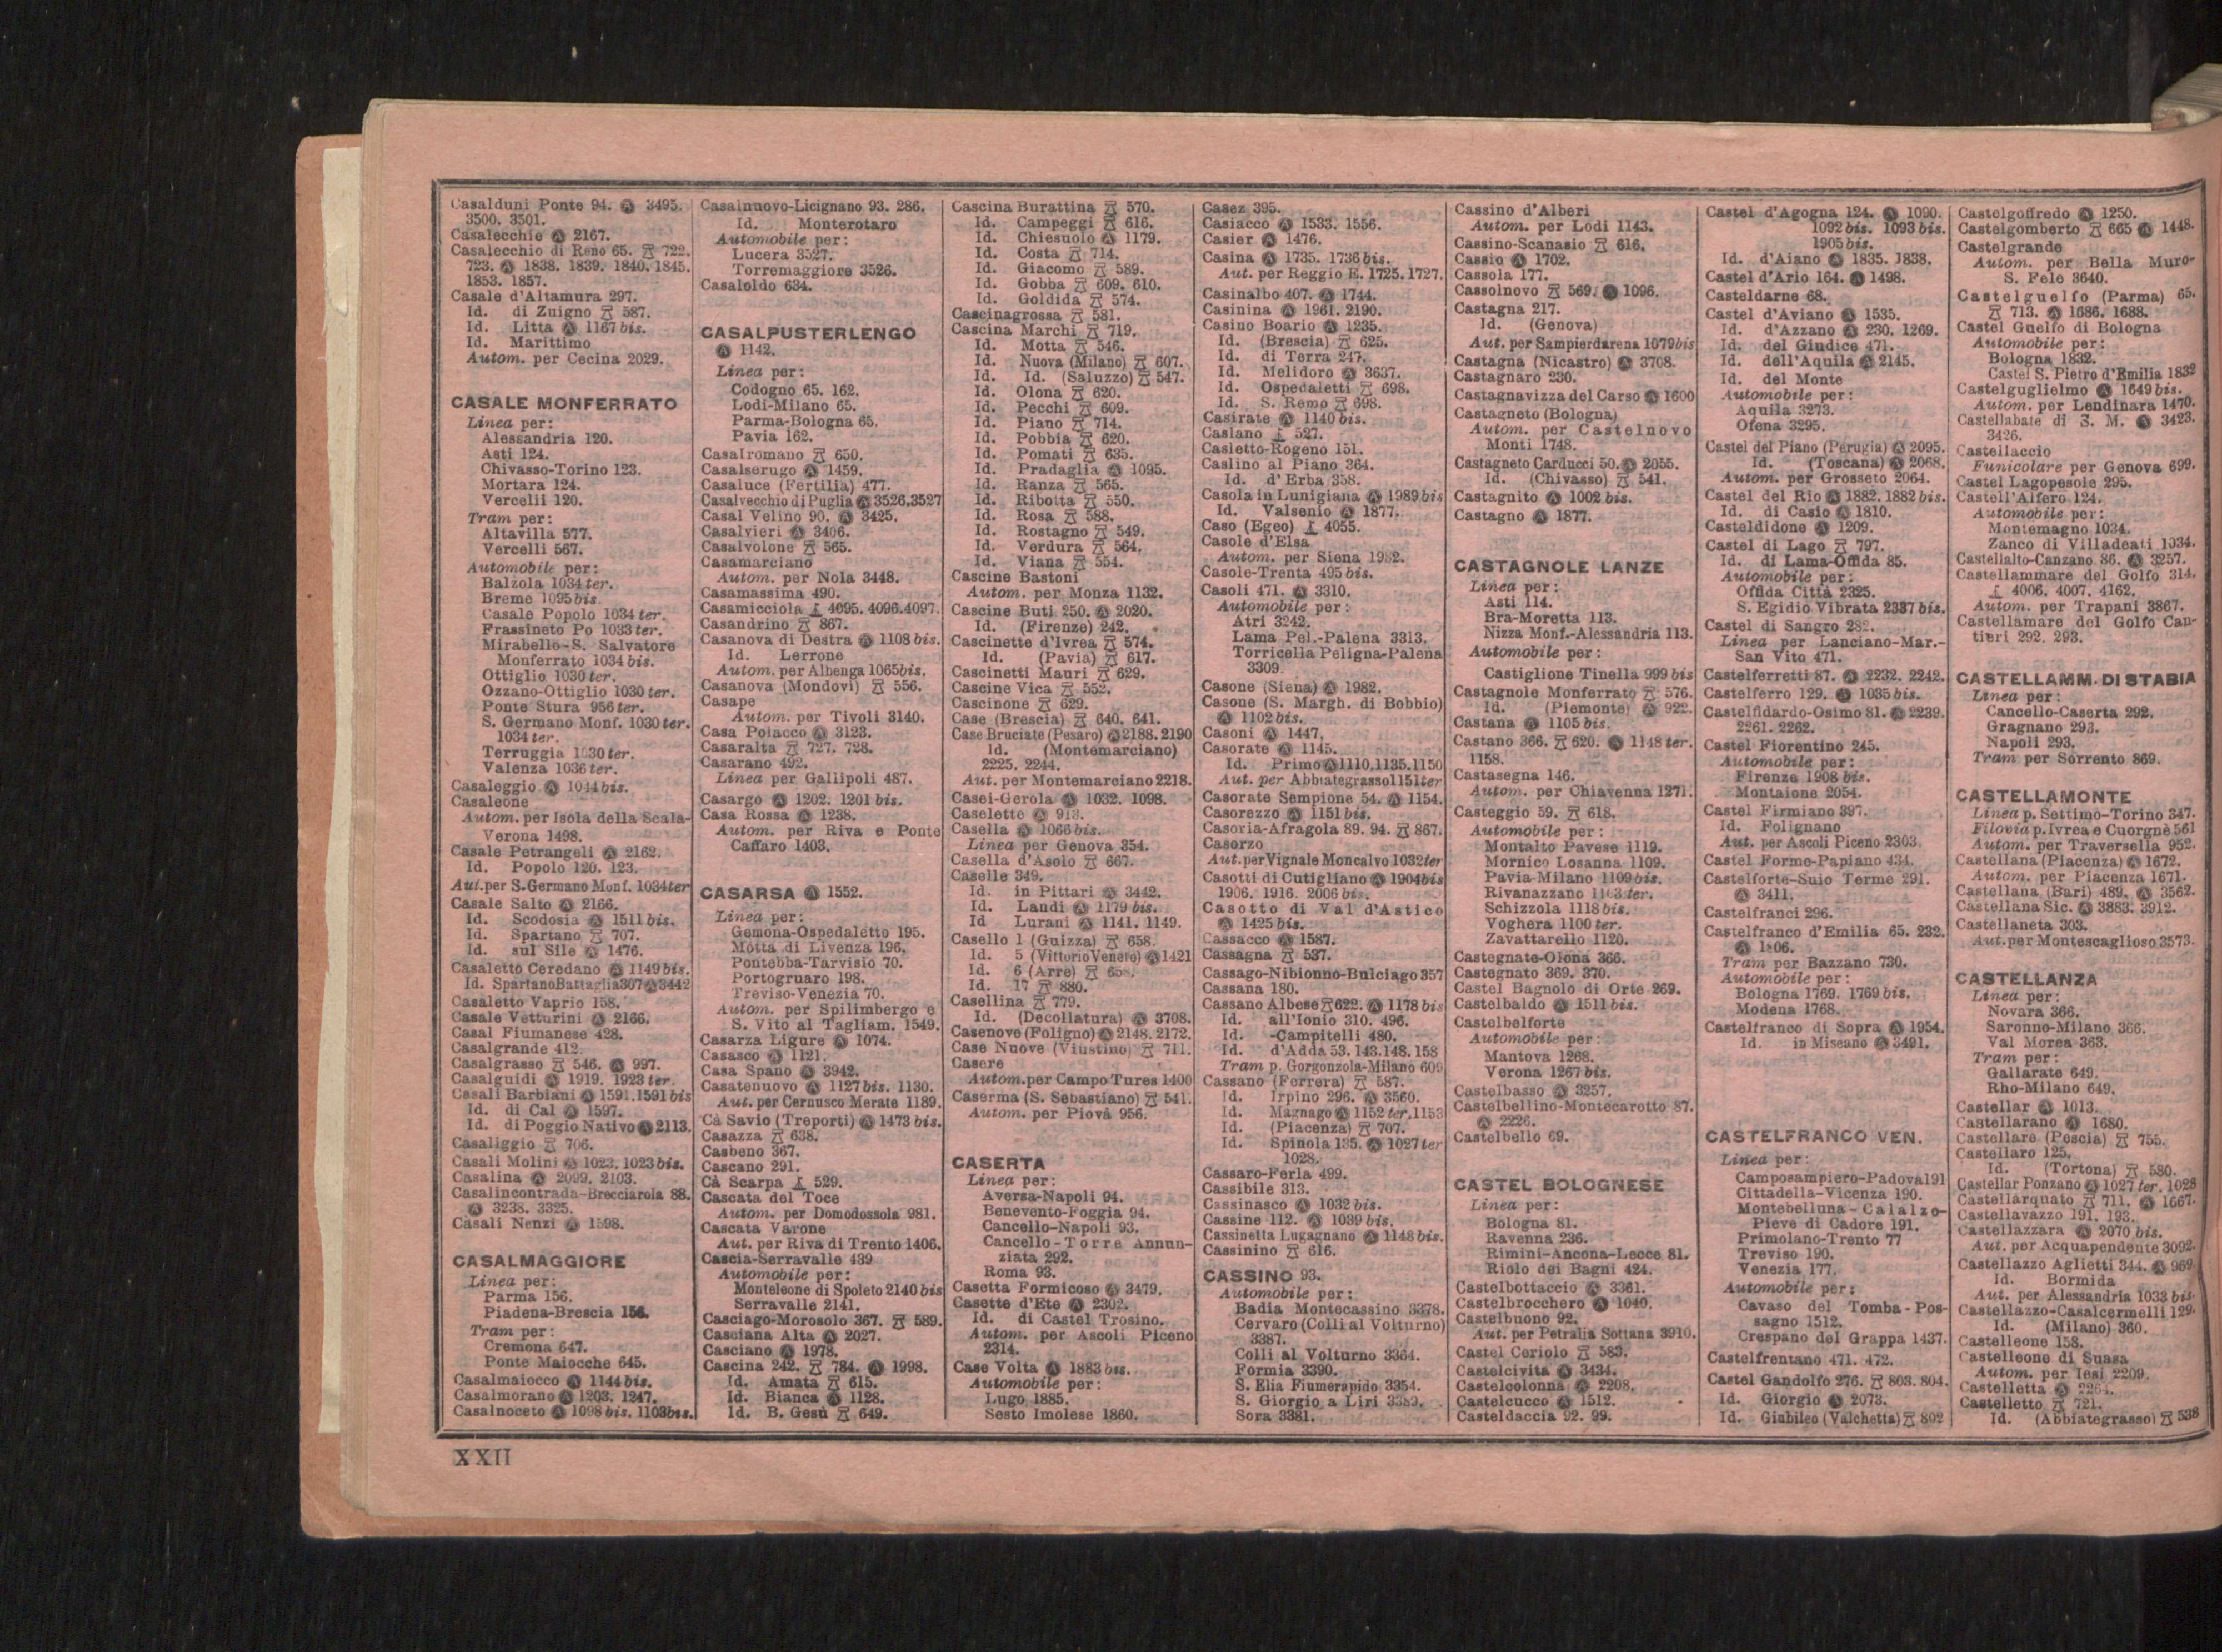 Casalduni Ponte 94. Ⓐ 3495.
3500. 3501.
Casalecchie Ⓐ 2167.
Casalecchio di Reno 65. 722.
723. Ⓐ 1838. 1839. 1840. 1845.
1853. 1857.
Casale d'Altamura 297.
Id. di Zuigno 587.
Id. Litta Ⓐ 1167 bis.
Id. Marittimo
Autom. per Cecina 2029.
CASALE MONFERRATO
Linea per:
Alessandria 120.
Asti 124.
Chivasso-Torino 123.
Mortara 124.
Vercelli 120.
Tram per:
Altavilla 577.
Vercelli 567.
Automobile per:
Balzola 1034 ter.
Breme 1095 bis.
Casale Popolo 1034 ter.
Frassineto Po 1033 ter.
Mirabello-S. Salvatore
Monferrato 1034 bis.
Ottiglio 1030 ter.
Ozzano-Ottiglio 1030 ter.
Ponte Stura 956 ter.
S. Germano Monf. 1030 ter.
1034 ter.
Terruggia 1030 ter.
Valenza 1036 ter.
Casaleggio Ⓐ 1044 bis.
Casaleone
Autom. per Isola della Scala-
Verona 1498.
Casale Petrangeli Ⓐ 2162.
Id. Popolo 120. 123.
Aut. per S. Germano Monf. 1034 ter
Casale Salto Ⓐ 2166.
Id. Scodosia Ⓐ 1511 bis.
Id. Spartano 707.
Id. sul Sile Ⓐ 1476.
Casaletto Ceredano Ⓐ 1149 bis.
Id. Spartano Battaglia 307 Ⓐ 3442
Casaletto Vaprio 158.
Casale Vetturini Ⓐ 2166.
Casal Fiumanese 428.
Casalgrande 412.
Casalgrasso 546. Ⓐ 997.
Casalguidi Ⓐ 1919. 1923 ter.
Casali Barbiani Ⓐ 1591. 1591 bis
Id. di Cal Ⓐ 1597.
Id. di Poggio Nativo Ⓐ 2113.
Casaliggio 706.
Casali Molini Ⓐ 1023. 1023 bis.
Casalina Ⓐ 2099. 2103.
Casalincontrada-Brecciarola 88.
Ⓐ 3238. 3325.
Casali Nenzi Ⓐ 1598.
CASALMAGGIORE
Linea per:
Parma 156.
Piadena-Brescia 156.
Tram per:
Cremona 647.
Ponte Maiocche 645.
Casalmaiocco Ⓐ 1144 bis.
Casalmorano Ⓐ 1203. 1247.
Casalnoceto Ⓐ 1098 bis. 1103 bis.
Casalnuovo-Licignano 93. 286.
Id. Monterotaro
Automobile per:
Lucera 3527.
Torremaggiore 3526.
Casaloldo 634.
CASALPUSTERLENGO
Ⓐ 1142.
Linea per:
Codogno 65. 162.
Lodi-Milano 65.
Parma-Bologna 65.
Pavia 162.
Casalromano 650.
Casalserugo Ⓐ 1459.
Casaluce (Fertilia) 477.
Casalvecchio di Puglia Ⓐ 3526. 3527
Casal Velino 90. Ⓐ 3425.
Casalvieri Ⓐ 3406.
Casalvolone 565.
Casamarciano
Autom. per Nola 3448.
Casamassima 490.
Casamicciola 4095. 4096. 4097.
Casandrino 867.
Casanova di Destra Ⓐ 1108 bis.
Id. Lerrone
Autom. per Albenga 1065 bis.
Casanova (Mondovì) 556.
Casape
Autom. per Tivoli 3140.
Casa Polacco Ⓐ 3123.
Casaralta 727. 728.
Casarano 492.
Linea per Gallipoli 487.
Casargo Ⓐ 1202. 1201 bis.
Casa Rossa Ⓐ 1238.
Autom. per Riva e Ponte
Caffaro 1403.
CASARSA Ⓐ 1552.
Linea per:
Gemona-Ospedaletto 195.
Motta di Livenza 196.
Pontebba-Tarvisio 70.
Portogruaro 198.
Treviso-Venezia 70.
Autom. per Spilimbergo e
S. Vito al Tagliam. 1549.
Casarza Ligure Ⓐ 1074.
Casasco Ⓐ 1121.
Casa Spano Ⓐ 3942.
Casatenuovo Ⓐ 1127 bis. 1130.
Aut. per Cernusco Merate 1189.
Cà Savio (Treporti) Ⓐ 1473 bis.
Casazza 638.
Casbeno 367.
Cascano 291.
Cà Scarpa 529.
Cascata del Toce
Autom. per Domodossola 981.
Cascata Varone
Aut. per Riva di Trento 1406.
Cascia-Serravalle 439
Automobile per:
Monteleone di Spoleto 2140 bis
Serravalle 2141.
Casciago-Morosolo 367. 589.
Casciana Alta Ⓐ 2027.
Casciano Ⓐ 1978.
Cascina 242. 784. Ⓐ 1998.
Id. Amata 615.
Id. Bianca Ⓐ 1128.
Id. B. Gesù 649.
Cascina Burattina 570.
Id. Campeggi 616.
Id. Chiesuolo Ⓐ 1179.
Id. Costa 714.
Id. Giacomo 589.
Id. Gobba 609. 610.
Id. Goldida 574.
Cascinagrossa 581.
Cascina Marchi 719.
Id. Motta 546.
Id. Nuova (Milano) 607.
Id. Id. (Saluzzo) 547.
Id. Olona 620.
Id. Pecchi 609.
Id. Piano 714.
Id. Pobbia 620.
Id. Pomati 635.
Id. Pradaglia Ⓐ 1095.
Id. Ranza 565.
Id. Ribotta 550.
Id. Rosa 588.
Id. Rostagno 549.
Id. Verdura 564.
Id. Viana 554.
Cascine Bastoni
Autom. per Monza 1132.
Cascine Buti 250. Ⓐ 2020.
Id. (Firenze) 242.
Cascinette d'Ivrea 574.
Id. (Pavia) 617.
Cascinetti Mauri 629.
Cascine Vica 552.
Cascinone 629.
Case (Brescia) 640. 641.
Case Bruciate (Pesaro) Ⓐ 2188. 2190
Id. (Montemarciano)
2225. 2244.
Aut. per Montemarciano 2218.
Casei-Gerola Ⓐ 1032. 1098.
Caselette Ⓐ 913.
Casella Ⓐ 1066 bis.
Linea per Genova 354.
Casella d'Asolo 667.
Caselle 349.
Id. in Pittari Ⓐ 3442.
Id. Landi Ⓐ 1179 bis.
Id Lurani Ⓐ 1141. 1149.
Casello 1 (Guizza) 658.
Id. 5 (Vittorio Veneto) Ⓐ 1421
Id. 6 (Arre)
Id. 17 880.
Casellina 779.
Id. (Decollatura) Ⓐ 3708.
Casenove (Foligno) Ⓐ 2148. 2172.
Case Nuove (Viustino) 711.
Casere
Autom. per Campo Tures 1400
Caserma (S. Sebastiano) 541.
Autom. per Piovà 956.
CASERTA
Linea per:
Aversa-Napoli 94.
Benevento-Foggia 94.
Cancello-Napoli 93.
Cancello-Torre Annun-
ziata 292.
Roma 93.
Casetta Formicoso Ⓐ 3479.
Casette d'Ete Ⓐ 2302.
Id. di Castel Trosino.
Autom. per Ascoli Piceno
2314.
Case Volta Ⓐ 1883 bis.
Automobile per:
Lugo 1885.
Sesto Imolese 1860.
Casez 395.
Casiacco Ⓐ 1533. 1556.
Casier Ⓐ 1476.
Casina Ⓐ 1735. 1736 bis.
Aut. per Reggio E. 1725. 1727.
Casinalbo 407. Ⓐ 1744.
Casinina Ⓐ 1961. 2190.
Casino Boario Ⓐ 1235.
Id. (Brescia) 625.
Id. di Terra 247.
Id. Melidoro Ⓐ 3637.
Id. Ospedaletti 698.
Id. S. Remo 698.
Casirate Ⓐ 1140 bis.
Caslano 527.
Casletto-Rogeno 151.
Caslino al Piano 364.
Id. d'Erba 358.
Casola in Lunigiana Ⓐ 1989 bis
Id. Valsenio Ⓐ 1877.
Caso (Egeo) 4055.
Casole d'Elsa
Autom. per Siena 1982.
Casole-Trenta 495 bis.
Casoli 471. Ⓐ 3310.
Automobile per:
Atri 3242.
Lama Pel.-Palena 3313.
Torricella Peligna-Palena
3309.
Casone (Siena) Ⓐ 1982.
Casone (S. Margh. di Bobbio)
Ⓐ 1102 bis.
Casoni Ⓐ 1447,
Casorate Ⓐ 1145.
Id. Primo Ⓐ 1110. 1135. 1150
Aut. per Abbiategrasso 1151 ter
Casorate Sempione 54. Ⓐ 1154.
Casorezzo Ⓐ 1151 bis.
Casoria-Afragola 89. 94. 867.
Casorzo
Aut. per Vignale Moncalvo 1032 ter
Casotti di Cutigliano Ⓐ 1904 bis
1906. 1916. 2006 bis.
Casotto di Val d'Astico
Ⓐ 1425 bis.
Cassacco Ⓐ 1587.
Cassagna 537.
Cassago-Nibionno-Bulciago 357
Cassana 180.
Cassano Albese 622. Ⓐ 1178 bis
Id. all'Ionio 310. 496.
Id. -Campitelli 480.
Id. d'Adda 53. 143. 148. 158
Tram p. Gorgonzola-Milano 609
Cassano (Ferrera) 587.
Id. Irpino 296. Ⓐ 3560.
Id. Magnago Ⓐ 1152 ter. 1153
Id. (Piacenza) 707.
Id. Spinola 135. Ⓐ 1027 ter
1028.
Cassaro-Ferla 499.
Cassibile 313.
Cassinasco Ⓐ 1032 bis.
Cassine 112. Ⓐ 1039 bis.
Cassinetta Lugagnano Ⓐ 1148 bis.
Cassinino 616.
CASSINO 93.
Automobile per:
Badia Montecassino 3378.
Cervaro (Colli al Volturno)
3387.
Colli al Volturno 3364.
Formia 3390.
S. Elia Fiumerapido 3354.
S. Giorgio a Liri 3389.
Sora 3381.
Cassino d'Alberi
Autom. per Lodi 1143.
Cassino-Scanasio 616.
Cassio Ⓐ 1702.
Cassola 177.
Cassolnovo 569. Ⓐ 1096.
Castagna 217.
Id. (Genova)
Aut. per Sampierdarena 1079 bis
Castagna (Nicastro) Ⓐ 3708.
Castagnaro 230.
Castagnavizza del Carso Ⓐ 1600
Castagneto (Bologna)
Autom. per Castelnovo
Monti 1748.
Castagneto Carducci 50. Ⓐ 2055.
Id. (Chivasso) 541.
Castagnito Ⓐ 1002 bis.
Castagno Ⓐ 1877.
CASTAGNOLE LANZE
Linea per:
Asti 114.
Bra-Moretta 113.
Nizza Monf.-Alessandria 113.
Automobile per:
Castiglione Tinella 999 bis
Castagnole Monferrato 576.
Id. (Piemonte) Ⓐ 922.
Castana Ⓐ 1105 bis.
Castano 366. 620. Ⓐ 1148 ter.
1158.
Castasegna 146.
Autom. per Chiavenna 1271.
Casteggio 59. 618.
Automobile per:
Montalto Pavese 1119.
Mornico Losanna 1109.
Pavia-Milano 1109 bis.
Rivanazzano 1103 ter.
Schizzola 1118 bis.
Voghera 1100 ter.
Zavattarello 1120.
Castegnate-Olona 366.
Castegnato 369. 370.
Castel Bagnolo di Orte 269.
Castelbaldo Ⓐ 1511 bis.
Castelbelforte
Automobile per:
Mantova 1268.
Verona 1267 bis.
Castelbasso Ⓐ 3257.
Castelbellino-Montecarotto 87.
Ⓐ 2226.
Castelbello 69.
CASTEL BOLOGNESE
Linea per:
Bologna 81.
Ravenna 236.
Rimini-Ancona-Lecce 81.
Riolo dei Bagni 424.
Castelbottaccio Ⓐ 3361.
Castelbrocchero Ⓐ 1040.
Castelbuono 92.
Aut. per Petralia Sottana 3910.
Castel Ceriolo 583.
Castelcivita Ⓐ 3434.
Castelcolonna Ⓐ 2208.
Castelcucco Ⓐ 1512.
Casteldaccia 92. 99.
Castel d'Agogna 124. Ⓐ 1090.
1092 bis. 1093 bis.
1905 bis.
Id. d'Aiano Ⓐ 1835. 1838.
Castel d'Ario 164. Ⓐ 1498.
Casteldarne 68.
Castel d'Aviano Ⓐ 1535.
Id. d'Azzano Ⓐ 230. 1269.
Id. del Giudice 471.
Id. dell'Aquila Ⓐ 2145.
Id. del Monte
Automobile per:
Aquila 3273.
Ofena 3295.
Castel del Piano (Perugia) Ⓐ 2095.
Id. (Toscana) Ⓐ 2068.
Autom. per Grosseto 2064.
Castel del Rio Ⓐ 1882. 1882 bis.
Id. di Casio Ⓐ 1810.
Casteldidone Ⓐ 1209.
Castel di Lago 797.
Id. di Lama-Offida 85.
Automobile per:
Offida Città 2325.
S. Egidio Vibrata 2337 bis.
Castel di Sangro 282.
Linea per Lanciano-Mar.-
San Vito 471.
Castelferretti 87. Ⓐ 2232. 2242.
Castelferro 129. Ⓐ 1035 bis.
Castelfidardo-Osimo 81. Ⓐ 2239.
2261. 2262.
Castel Fiorentino 245.
Automobile per:
Firenze 1908 bis.
Montaione 2054.
Castel Firmiano 397.
Id. Folignano
Aut. per Ascoli Piceno 2303.
Castel Forme-Papiano 434.
Castelforte-Suio Terme 291.
Ⓐ 3411.
Castelfranci 296.
Castelfranco d'Emilia 65. 232.
Ⓐ 1806.
Tram per Bazzano 730.
Automobile per:
Bologna 1769. 1769 bis.
Modena 1768.
Castelfranco di Sopra Ⓐ 1954.
Id. in Miscano Ⓐ 3491.
CASTELFRANCO VEN.
Linea per:
Camposampiero-Padova 191
Cittadella-Vicenza 190.
Montebelluna-Calalzo-
Pieve di Cadore 191.
Primolano-Trento 77
Treviso 190.
Venezia 177.
Automobile per:
Cavaso del Tomba-Pos-
sagno 1512.
Crespano del Grappa 1437.
Castelfrentano 471. 472.
Castel Gandolfo 276. 803. 804.
Id. Giorgio Ⓐ 2073.
Id. Giubileo (Valchetta) 802
Castelgoffredo Ⓐ 1250.
Castelgomberto 665 Ⓐ 1448.
Castelgrande
Autom. per Bella Muro-
S. Fele 3640.
Castelguelfo (Parma) 65.
713. Ⓐ 1686. 1688.
Castel Guelfo di Bologna
Automobile per:
Bologna 1832.
Castel S. Pietro d'Emilia 1832
Castelguglielmo Ⓐ 1649 bis.
Autom. per Lendinara 1470.
Castellabate di S. M. Ⓐ 3423.
3426.
Castellaccio
Funicolare per Genova 699.
Castel Lagopesole 295.
Castell'Alfero 124.
Automobile per:
Montemagno 1034.
Zanco di Villadeati 1034.
Castellalto-Canzano 86. Ⓐ 3257.
Castellammare del Golfo 314.
4006. 4007. 4162.
Autom. per Trapani 3867.
Castellamare del Golfo Can-
tieri 292. 293.
CASTELLAMM. DI STABIA
Linea per:
Cancello-Caserta 292.
Gragnano 293.
Napoli 293.
Tram per Sorrento 869.
CASTELLAMONTE
Linea p. Settimo-Torino 347.
Filovia p. Ivrea e Cuorgnè 561
Autom. per Traversella 952.
Castellana (Piacenza) Ⓐ 1672.
Autom. per Piacenza 1671.
Castellana (Bari) 489. Ⓐ 3562.
Castellana Sic. Ⓐ 3883. 3912.
Castellaneta 303.
Aut. per Montescaglioso 3573.
CASTELLANZA
Linea per:
Novara 366.
Saronno-Milano 366.
Val Morea 363.
Tram per:
Gallarate 649.
Rho-Milano 649.
Castellar Ⓐ 1013.
Castellarano Ⓐ 1680.
Castellare (Pescia) 755.
Castellaro 125.
Id. (Tortona) 580.
Castellar Ponzano Ⓐ 1027 ter. 1028
Castellarquato 711. Ⓐ 1667.
Castellavazzo 191. 193.
Castellazzara Ⓐ 2070 bis.
Aut. per Acquapendente 3092.
Castellazzo Aglietti 344. Ⓐ 969
Id. Bormida
Aut. per Alessandria 1033 bis
Castellazzo-Casalcermelli 129.
Id. (Milano) 360.
Castelleone 158.
Castelleone di Suasa
Autom. per Iesi 2209.
Castelletta Ⓐ 2264.
Castelletto 721.
Id. (Abbiategrasso) 538
XXII